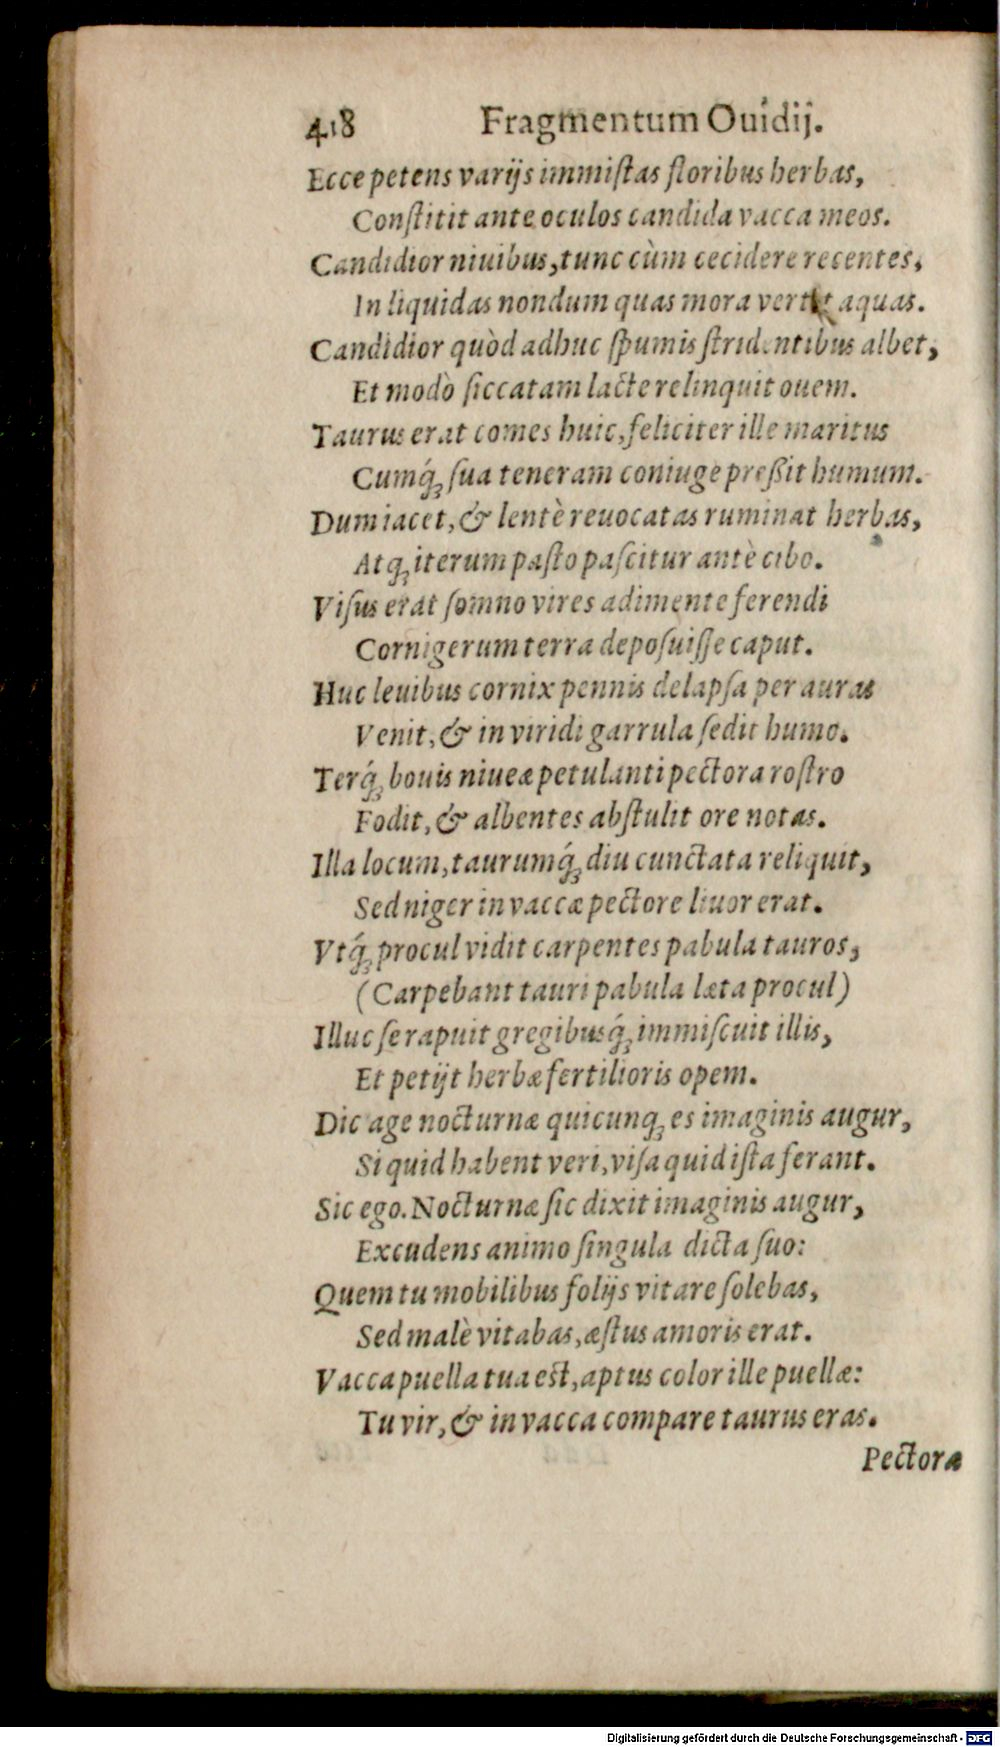 418 Fragmentum Ouidij.
Ecce petens varijs immiſtas floribus herbas,
Conſtitit ante oculos candida vacca meos.
Candidior niuibus, tunc cùm cecidere recentes,
In liquidas nondum quas mora vertit aquas.
Candidior quòd adhuc ſpumis ſtridentibus albet,
Et modò ſiccatam lacte relinquit ouem.
Taurus erat comes huic, feliciter ille maritus
Cumq́ꝫ ſua teneram coniuge preßit humum.
Dum iacet, & lentè reuocatas ruminat herbas,
Atqꝫ iterum paſto paſcitur antè cibo.
Viſus erat ſomno vires adimente ferendi
Cornigerum terra depoſuiſſe caput.
Huc leuibus cornix pennis delapſa per auras
Venit, & in viridi garrula ſedit humo.
Terq́ꝫ bouis niueæ petulanti pectora roſtro
Fodit, & albentes abſtulit ore notas.
Illa locum, taurumq́ꝫ diu cunctata reliquit,
Sed niger in vaccæ pectore liuor erat.
Vtq́ꝫ procul vidit carpentes pabula tauros,
(Carpebant tauri pabula læta procul)
Illuc ſe rapuit gregibusq́ꝫ immiſcuit illis,
Et petijt herbæ fertilioris opem.
Dic age nocturnæ quicunqꝫ es imaginis augur,
Si quid habent veri, viſa quid iſta ferant.
Sic ego. Nocturnæ ſic dixit imaginis augur,
Excudens animo ſingula dicta ſuo:
Quem tu mobilibus folijs vitare ſolebas,
Sed malè vitabas, æſtus amoris erat.
Vacca puella tua eſt, aptus color ille puellæ:
Tu vir, & in vacca compare taurus eras.
Pectora
Digitalisierung gefördert durch die Deutsche Forschungsgemeinschaft - DFG